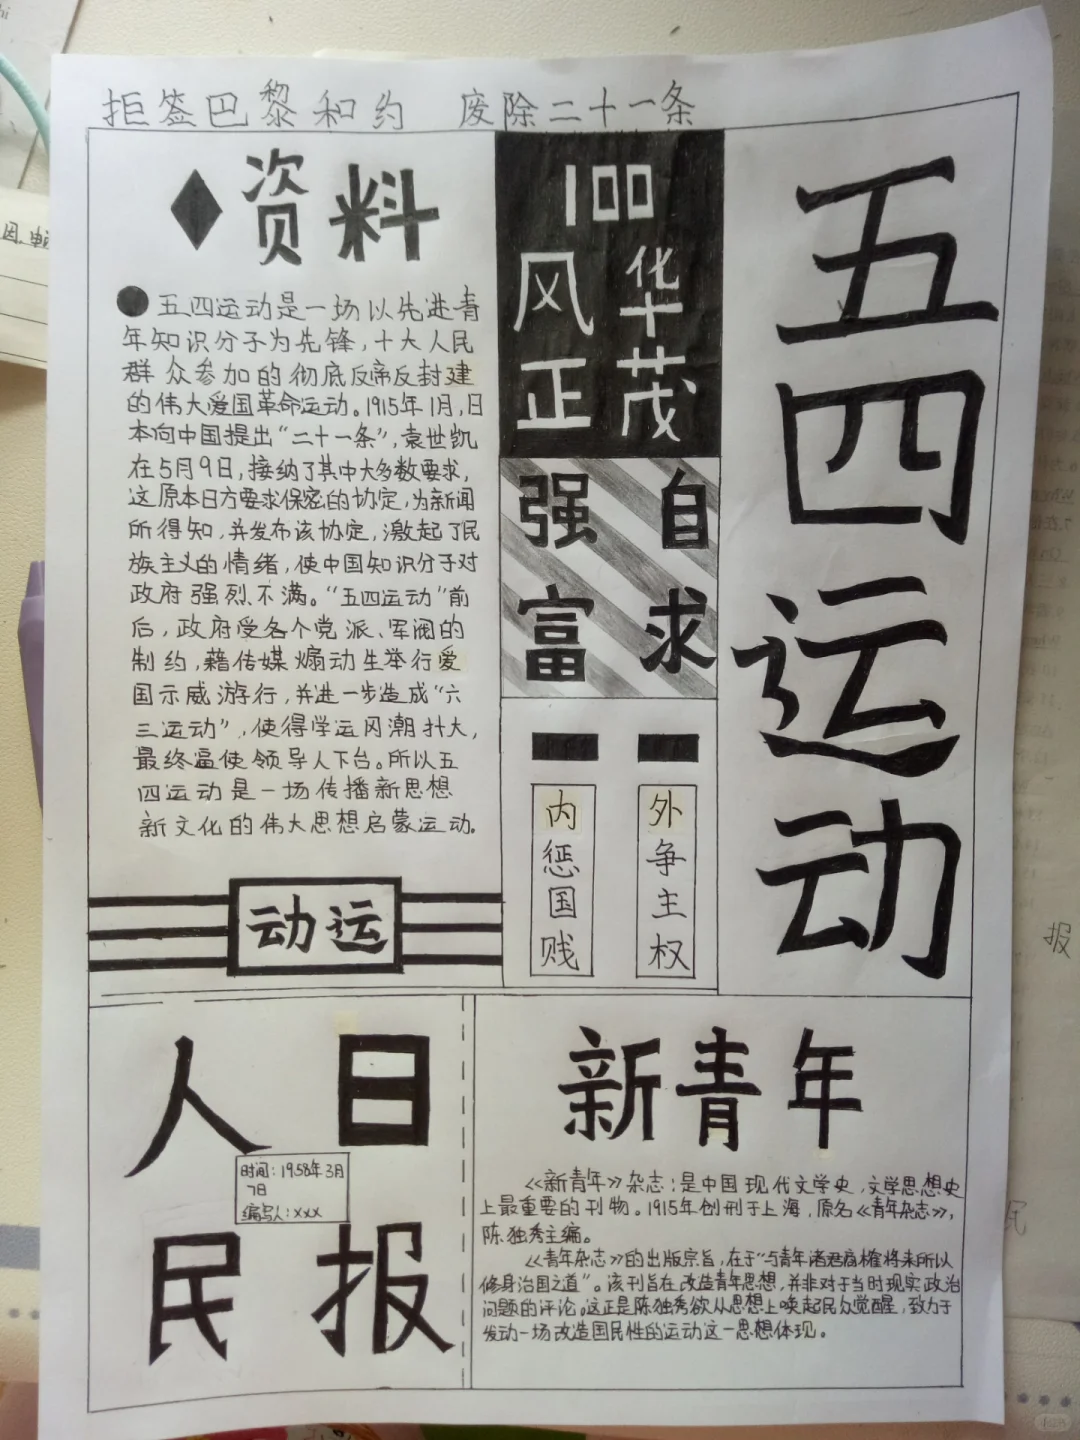 拒签巴黎和约 废除二十一条
五四运动
100
风华正茂
自强
求富
外争主权
内惩国贱
资料
五四运动是一场以先进青
年知识分子为先锋,十大人民
群众参加的彻底反帝反封建
的伟大爱国革命运动。1915年1月,日
本向中国提出“二十一条”,袁世凯
在5月9日,接纳了其中大多数要求,
这原本日方要求保密的协定,为新闻
所得知,并发布该协定,激起了民
族主义的情绪,使中国知识分子对
政府强烈不满。“五四运动”前
后,政府受各个党派、军阀的
制约,藉传媒煽动生举行爱
国示威游行,并进一步造成“六
三运动”,使得学运风潮扑大,
最终逼使领导人下台。所以五
四运动是一场传播新思想
新文化的伟大思想启蒙运动.
动运
人民日报
时间:1958年3月
7日
编写人:xxx
新青年
《新青年》杂志:是中国现代文学史,文学思想史
上最重要的刊物。1915年创刑于上海,原名《青年杂志》,
陈独秀主编。
《青年杂志》的出版宗旨,在于“与青年诸君商榷将来所以
修身治国之道”。该刊旨在改造青年思想,并非对于当时现实政治
问题的评论。这正是陈独秀欲从思想上唤起民众觉醒,致力于
发动一场改造国民性的运动这一思想体现。
报